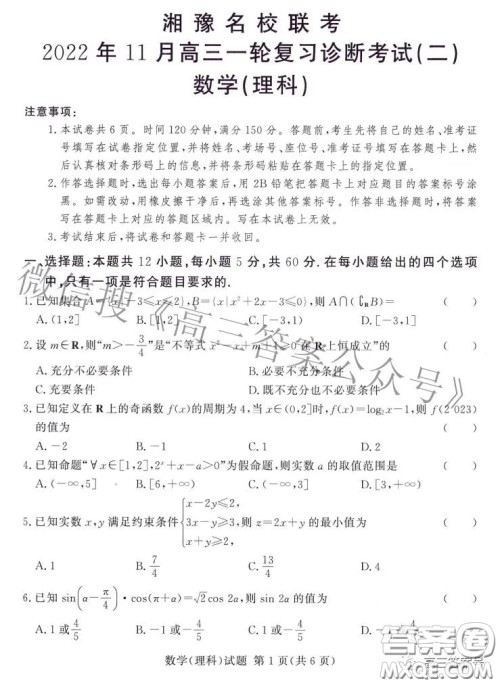 湘豫名校联考
2022年11月高三一轮复习诊断考试(二)
数学(理科)
注意事项:
1.本试卷共6页。时间120分钟,满分150分。答题前,考生先将自己的姓名、准考证
号填写在试卷指定位置,并将姓名、考场号、座位号、准考证号填写在答题卡上,然
后认真核对条形码上的信息,并将条形码粘贴在答题卡上的指定位置。
2.作答选择题时,选出每小题答案后,用2B铅笔把答题卡上对应题目的答案标号涂
黑。如需改动,用橡皮擦干净后,再选涂其他答案标号。作答非选择题时,将答案
写在答题卡上对应的答题区域内。写在本试卷上无效。
3.考试结束后,将试卷和答题卡一并收回。
一、选择题:本题共12小题,每小题5分,共60分.在每小题给出的四个选项
中,只有一项是符合题目要求的.
1.已知集合A={x|-3≤x≤2},B={x|x²+2x-3≤0},则A∩(∁RB)= ( )
A.(1,2] B.[1,2] C.[-3,1) D.[-3,1]
2.设m∈R,则“m>-3/4”是“不等式x²-x+m+1≥0在R上恒成立”的 ( )
A.充分不必要条件 B.必要不充分条件
C.充要条件 D.既不充分也不必要条件
3.已知定义在R上的奇函数f(x)的周期为4,当x∈(0,2]时,f(x)=log₂x-1,则f(2 023)
的值为 ( )
A.-2 B.-1 C.1 D.2
4.已知命题“∀x∈[1,2],2ˣ+x-a>0”为假命题,则实数a的取值范围是 ( )
A.(-∞,5] B.[6,+∞) C.(-∞,3] D.[3,+∞)
5.已知实数x,y满足约束条件{x-2y≤2, 3x-y≥3, x+y≥2,则z=2x+y的最小值为 ( )
A.1 B.7/4 C.13/4 D.4
6.已知sin(α-π/4)·cos(π+α)=√2cos 2α,则sin 2α的值为 ( )
A.1或4/5
数学(理科)试题 第1页(共6页)
微信搜《高三答案公众号》
答案圈
MXQE.COM